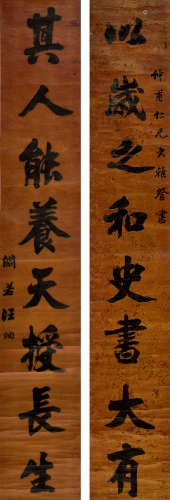 以歲之和史書大有
仲甫仁兄大雅詧書
其人能養天授長生
閬若汪